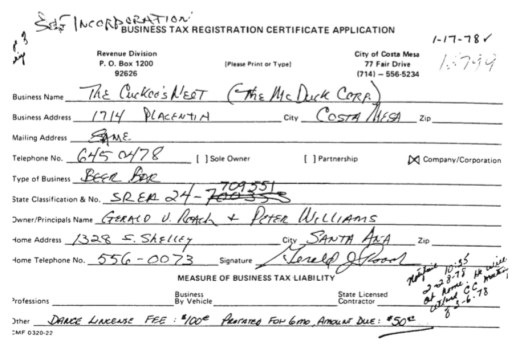 See INCORPORATION
BUSINESS TAX REGISTRATION CERTIFICATE APPLICATION
1-17-78
Revenue Division City of Costa Mesa
P. O. Box 1200 [Please Print or Type] 77 Fair Drive
92626 (714) — 556-5234
Business Name The Cuckoo's Nest (The McDuck Corp.)
Business Address 1714 PLACENTIA City COSTA MESA Zip
Mailing Address SAME
Telephone No. 645 0478 [ ] Sole Owner [ ] Partnership [X] Company/Corporation
Type of Business BEER BAR
709551
State Classification & No. SR EA 24-
Owner/Principals Name GERALD V. ROACH & PETER WILLIAMS
Home Address 1328 S. Shelley City SANTA ANA Zip
Home Telephone No. 556-0073 Signature
MEASURE OF BUSINESS TAX LIABILITY
Professions Business By Vehicle State Licensed Contractor
Other DANCE LINCENSE FEE : $100 PRORATED FOR 6 mo, AMOUNT DUE: $50
CMF 0320-22